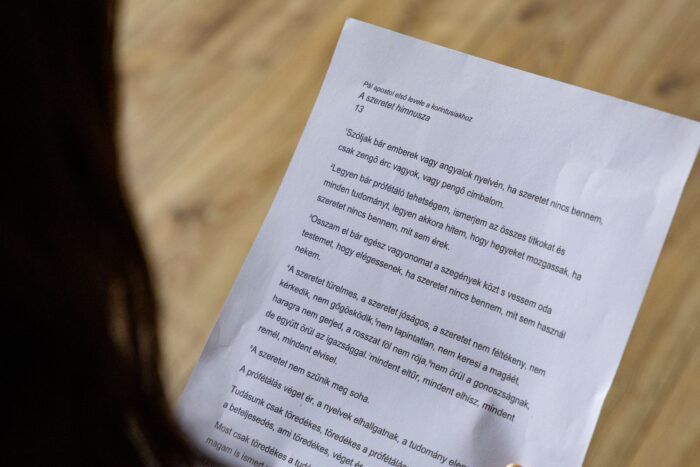 Pál apostol első levele a korintusiakhoz
A szeretet himnusza
13
¹Szóljak bár emberek vagy angyalok nyelvén, ha szeretet nincs bennem,
csak zengő érc vagyok, vagy pengő cimbalom.
²Legyen bár prófétáló tehetségem, ismerjem az összes titkokat és
minden tudományt, legyen akkora hitem, hogy hegyeket mozgassak, ha
szeretet nincs bennem, mit sem érek.
³Osszam el bár egész vagyonomat a szegények közt s vessem oda
testemet, hogy elégessenek, ha szeretet nincs bennem, mit sem használ
nekem.
⁴A szeretet türelmes, a szeretet jóságos, a szeretet nem féltékeny, nem
kérkedik, nem gőgösködik, ⁵nem tapintatlan, nem keresi a magáét,
haragra nem gerjed, a rosszat föl nem rója, ⁶nem örül a gonoszságnak,
de együtt örül az igazsággal. ⁷mindent eltűr, mindent elhisz, mindent
remél, mindent elvisel.
⁸A szeretet nem szűnik meg soha.
A prófétálás véget ér, a nyelvek elhallgatnak, a tudomány elen
Tudásunk csak töredékes, töredékes a prófétálás
a beteljesedés, ami töredékes, véget ér
Most csak töredékes a tudá
magam is ismert